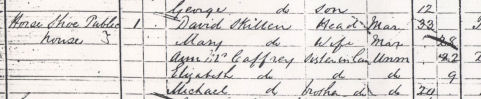 George do son 12
Horse Shoe Public 1 David Skillen Head Mar 33
house Mary do Wife Mar 28
Ann McCaffrey Sister in law Unm 22
Elizabeth do do do 9
Michael do brother do do 20